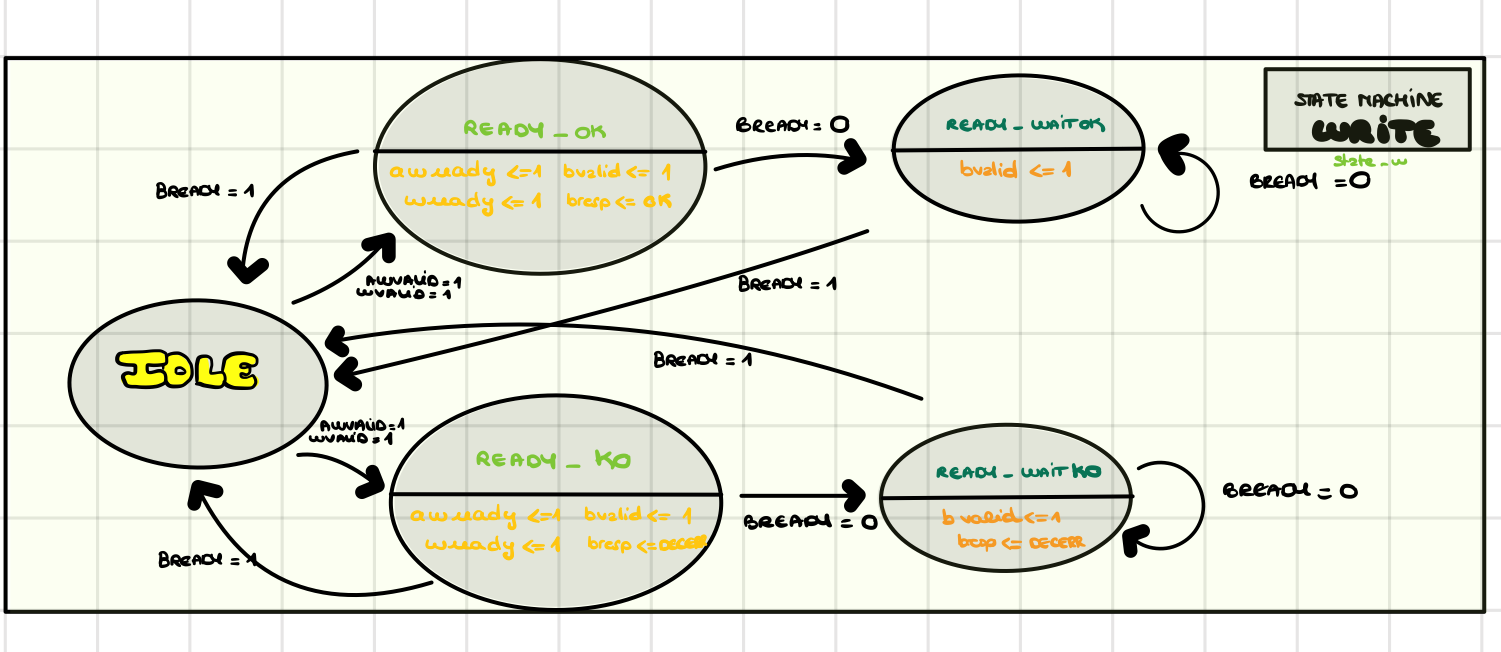 STATE MACHINE
WRITE
state_w
READY_OK
awready <=1 bvalid <= 1
wready <= 1 bresp <= OK
BREADY = 0
READY_WAITOK
bvalid <= 1
BREADY = 0
BREADY = 1
AWVALID=1
WVALID=1
BREADY = 1
IDLE
BREADY = 1
AWVALID=1
WVALID=1
READY_KO
awready <=1 bvalid <= 1
wready <= 1 bresp <= DECERR
BREADY = 0
READY_WAITKO
bvalid <=1
bresp <= DECERR
BREADY = 0
BREADY = 1